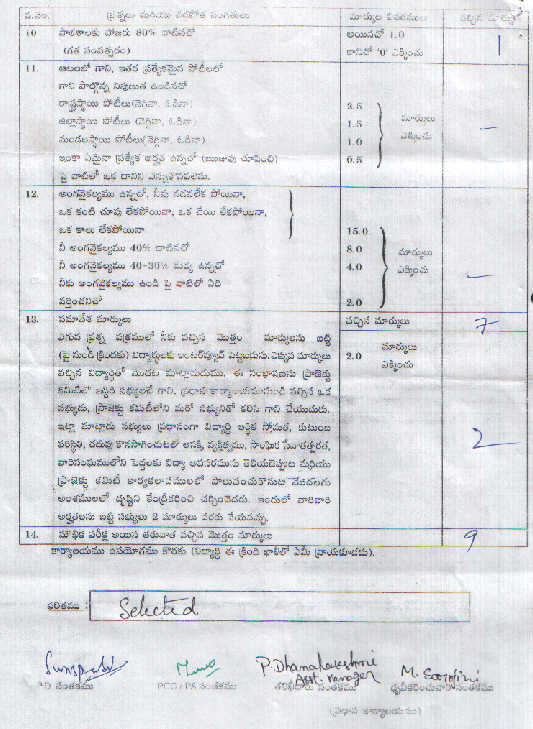 వ.నెం. ప్రశ్నలు మరియు సంగతులు మార్కుల వివరములు వచ్చిన మార్కులు
10 పాఠశాలకు హాజరు 80% దాటినచో అయినచో 1.0 1
(గత సంవత్సరం) కానిచో '0' ఎక్కించు
11. ఆటలలో గాని, ఇతర ప్రత్యేకమైన పోటీలలో
గాని పాల్గొన్న నిపుణత ఉండినచో
రాష్ట్రస్థాయి పోటీలు(నెగ్గినా, ఓడినా) 2.5 మార్కులు
జిల్లాస్థాయి పోటీలు (నెగ్గినా, ఓడినా) 1.5 ఎక్కించు –
మండలస్థాయి పోటీలు(నెగ్గినా, ఓడినా) 1.0
ఇంకా ఏమైనా ప్రత్యేక అర్హత ఉన్నచో (ఋజువు చూపించి) 0.5
పై వాటిలో ఒక దానిని
12. అంగవైకల్యము ఉన్నచో, నీవు నడవలేక పోయినా,
ఒక కంటి చూపు లేకపోయినా, ఒక చేయి లేకపోయినా,
ఒక కాలు లేకపోయినా 15.0
నీ అంగవైకల్యము 40% దాటినచో 8.0 మార్కులు
నీ అంగవైకల్యము 40-30% మధ్య ఉన్నచో 4.0 ఎక్కించు
నీకు అంగవైకల్యము ఉండి పై వాటిలో ఏది –
వర్తించనిచో 2.0
13. సమావేశ మార్కులు వచ్చిన మార్కులు 7
ఎగువ ప్రశ్న పత్రములో నీకు వచ్చిన మొత్తం మార్కులను బట్టి మార్కులు
(పై నుండి క్రిందకు) విద్యార్థులకు ఇంటర్వ్యూకి ఎక్కువ మార్కులు 2.0 ఎక్కించు
వచ్చిన విద్యార్థితో మొదట మాట్లాడుదుము. ఈ సంభాషణను ప్రాజెక్టు
కమిటీలో ఇద్దరి సభ్యులతో గాని, ప్రధాన కార్యాలయమునుండి వచ్చిన ఒక
సభ్యుడు, ప్రాజెక్టు కమిటీలోని మరో సభ్యునితో కలిసి గాని చేయుదురు.
ఇట్లా మాట్లాడు సభ్యులు ప్రధానంగా విద్యార్థి ఆర్థిక స్తోమత, కుటుంబ 2
పరిస్థితి, చదువు కొనసాగించుటలో ఆసక్తి, వ్యక్తిత్వము, సాంఘిక
పెద్దలకు విద్యా మరియు
ప్రాజెక్టు కమిటీ కార్యకలాపములలో పాలుపంచుకొనుట మొదలగు
అంశములలో దృష్టిని కేంద్రీకరించి చర్చించెదరు. ఇందులో వారివారి
అర్హతలను బట్టి సభ్యులు 2 మార్కులు వరకు వేయవచ్చు.
14. మౌఖిక పరీక్ష అయిన తరువాత వచ్చిన మొత్తం మార్కులు 9
కార్యాలయము ఉపయోగము కొరకు (విద్యార్థి ఈ క్రింది ఖాళీలో ఏమీ వ్రాయకూడదు).
ఫలితము : Selected
P. Dhanalakshmi M. Sarojini
Asst. manager
సంతకము PCC / PS సంతకము సంతకము ధృవీకరించువారి సంతకము
(ప్రధాన కార్యాలయము)